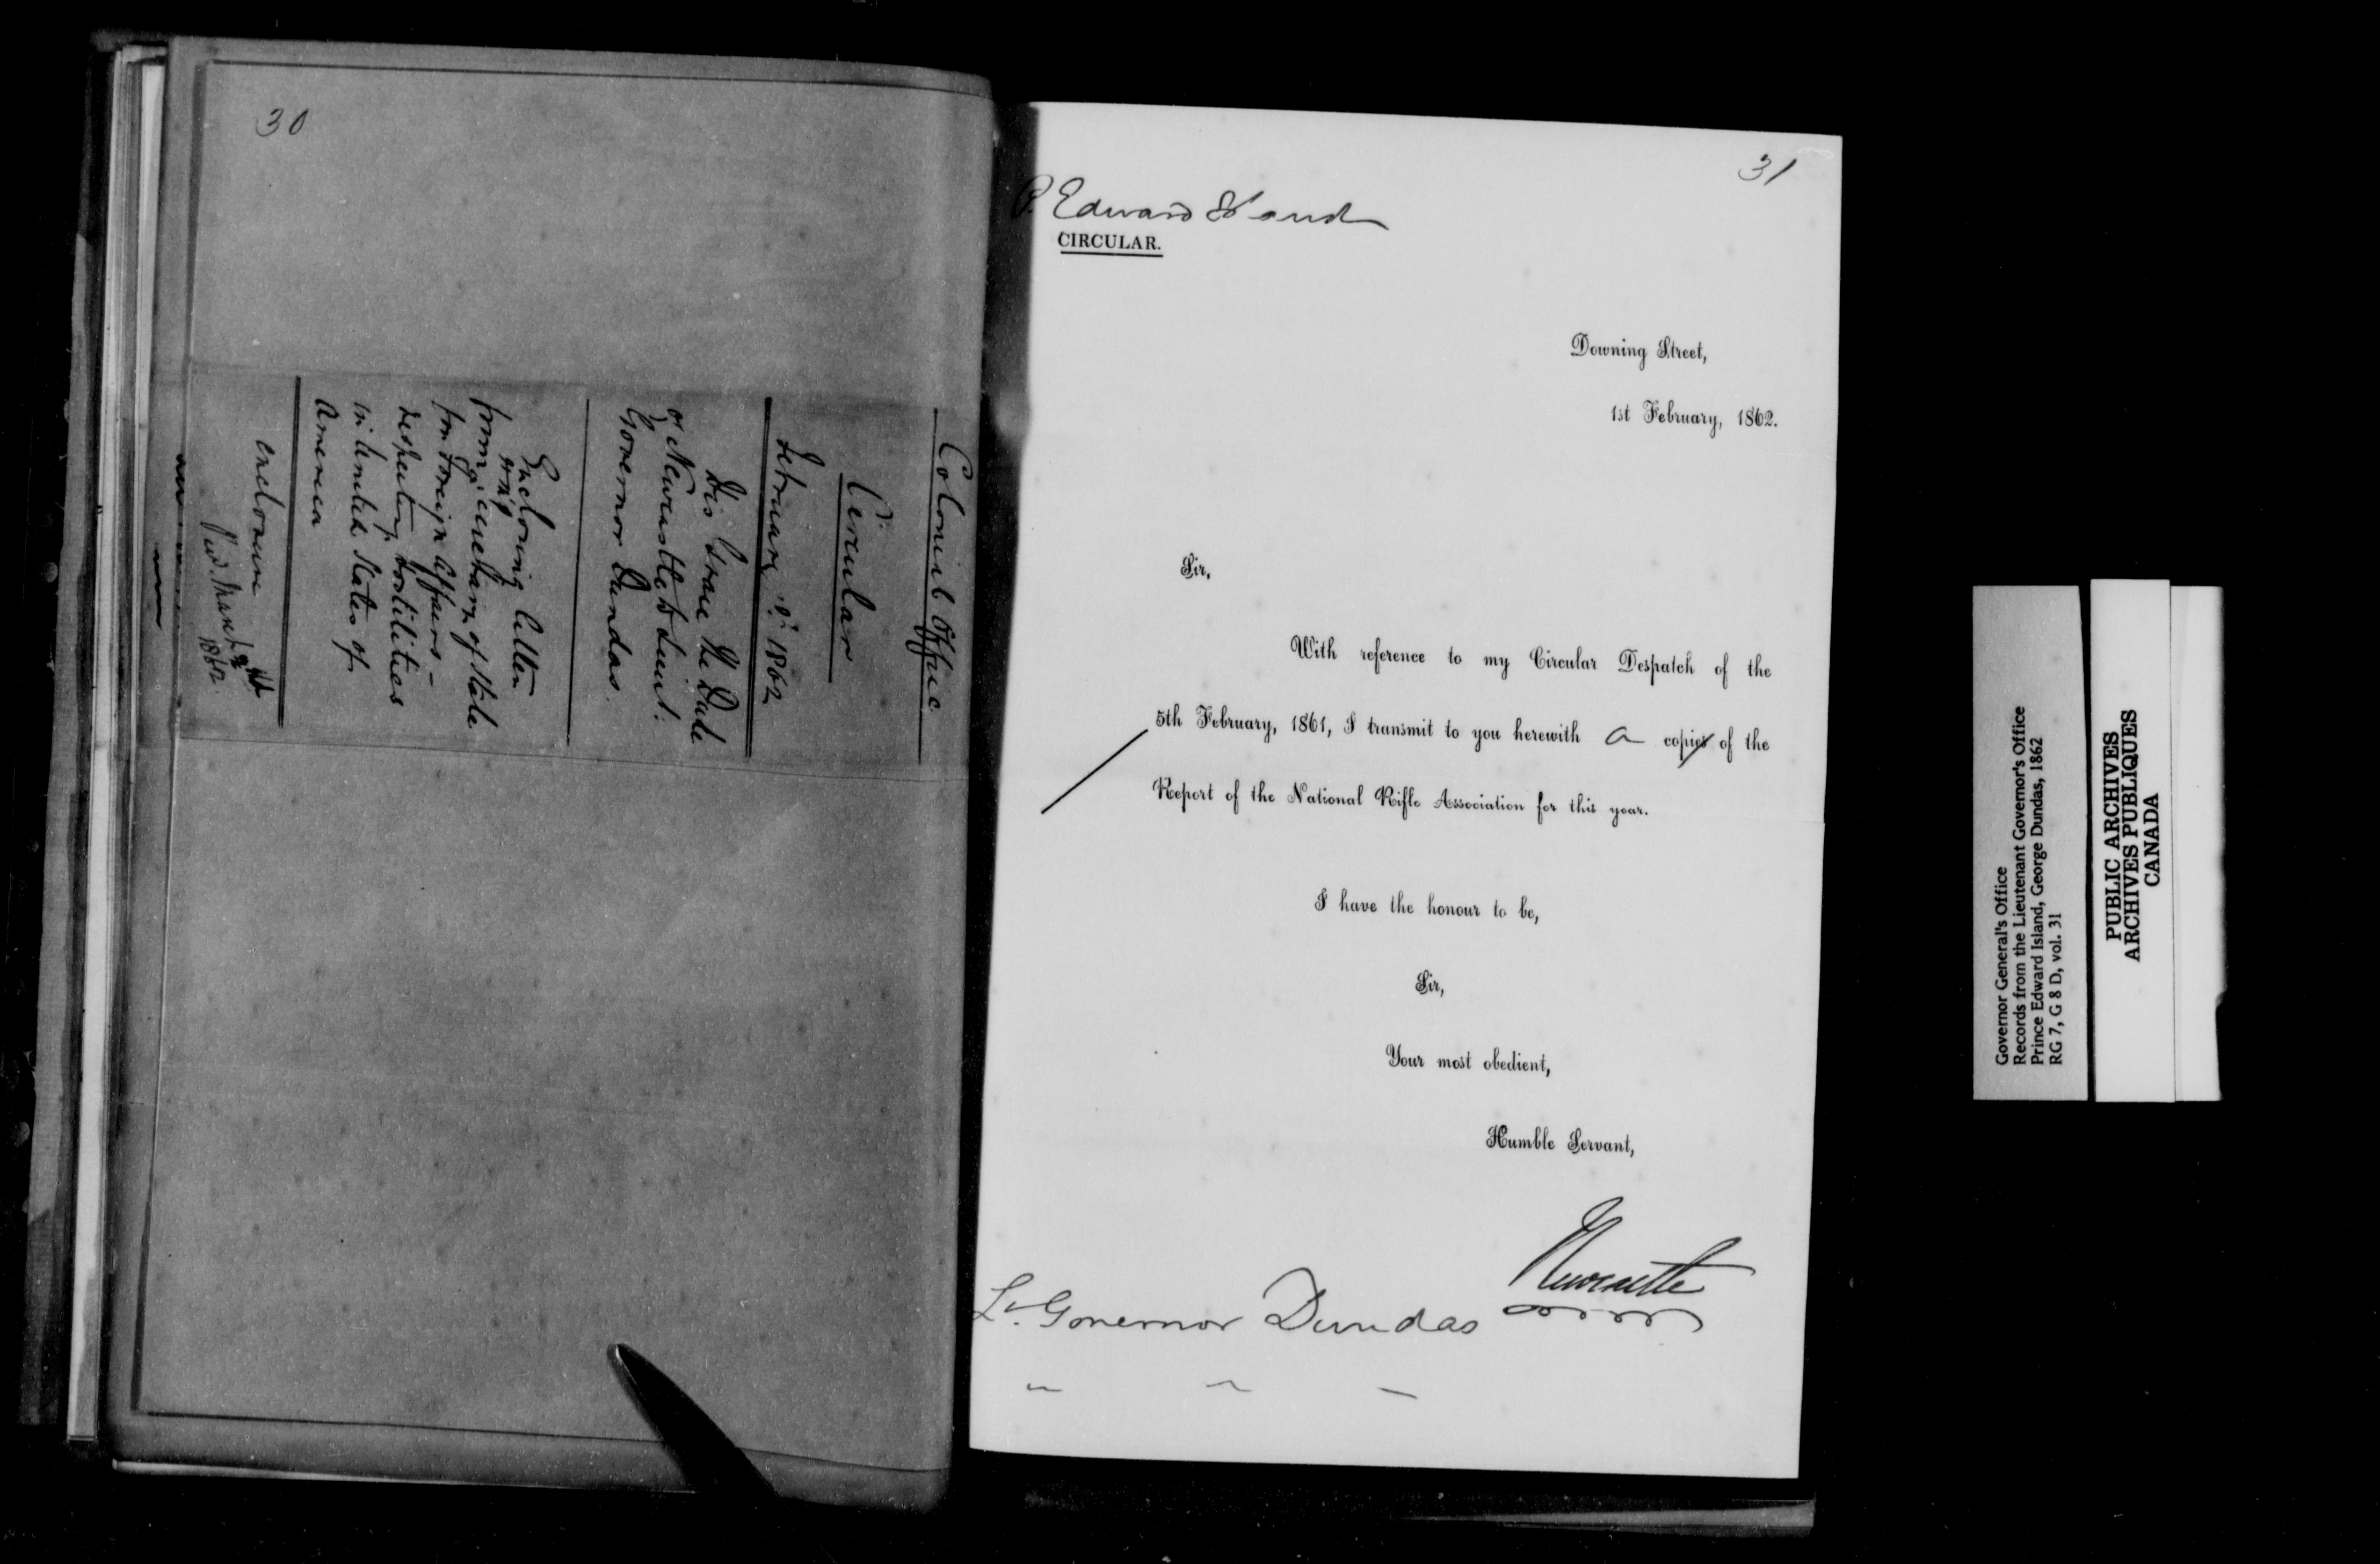 30
Colonial Office
Circular
February 1862
His Grace the Duke
of Newcastle to Lieut:
Governor Dundas.
Enclosing letter
from Secretary of State
for Foreign Affairs –
respecting hostilities
in United States of
America
enclosure
1862
31
P. Edward Island
CIRCULAR.
Downing Street,
1st February, 1862.
Sir,
With reference to my Circular Despatch of the
5th February, 1861, I transmit to you herewith a copy of the
Report of the National Rifle Association for this year.
I have the honour to be,
Sir,
Your most obedient,
Humble Servant,
Newcastle
Lt. Governor Dundas
Governor General's Office
Records from the Lieutenant Governor's Office
Prince Edward Island, George Dundas, 1862
RG 7, G 8 D, vol. 31
PUBLIC ARCHIVES
ARCHIVES PUBLIQUES
CANADA